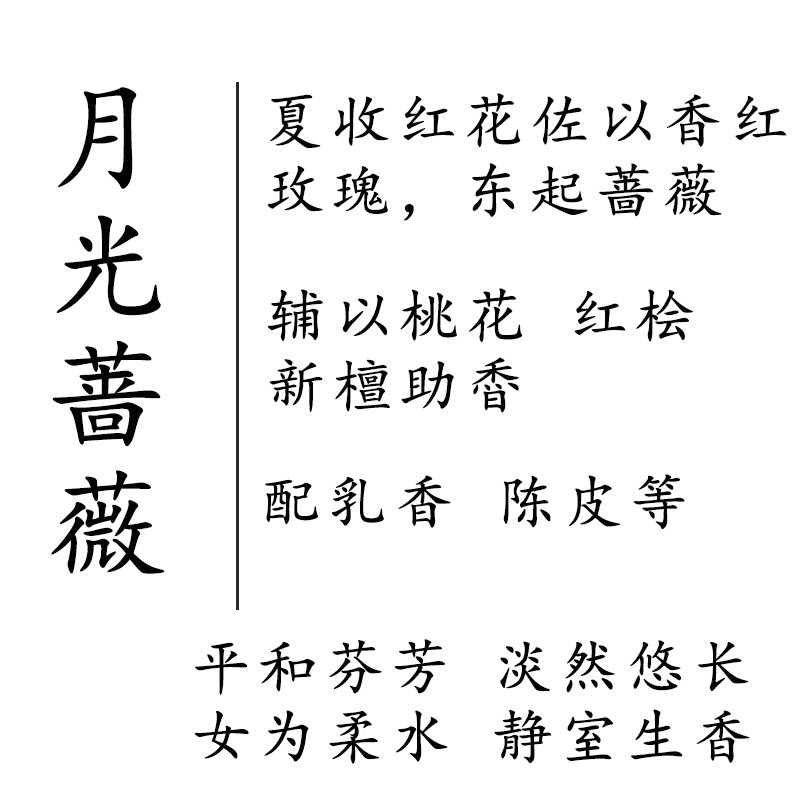 月光蔷薇
夏收红花佐以香红
玫瑰，东起蔷薇
辅以桃花 红桧
新檀助香
配乳香 陈皮等
平和芬芳 淡然悠长
女为柔水 静室生香